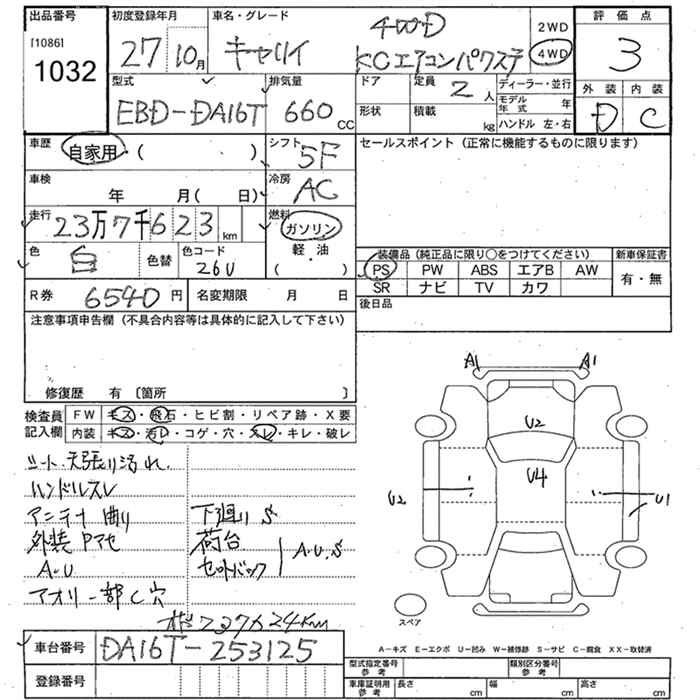 出品番号
[1086]
1032
初度登録年月
27 10月
車名・グレード
4WD
キャリイ KCエアコンパワステ
2WD
4WD
評価点
3
型式
EBD-DA16T
排気量
660 CC
ドア
定員 2 人
ディーラー・並行
モデル年式 年
形状
積載 kg
ハンドル 左・右
外装 内装
D C
車歴
自家用・( )
シフト
5F
セールスポイント(正常に機能するものに限ります)
車検
年 月( 日)
冷房
AC
走行
23万7千623 km
燃料
ガソリン
軽・油
( )
色
白
色替
色コード
26U
装備品(純正品に限り○をつけてください)
新車保証書
PS PW ABS エアB AW
SR ナビ TV カワ
有・無
R券 6540 円
名変期限 月 日
後日品
注意事項申告欄(不具合内容等は具体的に記入して下さい)
修復歴 有 〔箇所 〕
検査員記入欄
FW キズ・飛石・ヒビ割・リペア跡・X要
内装 キズ・汚レ・コゲ・穴・スレ・キレ・破レ
シート・天張り汚れ
ハンドルスレ
アンテナ曲り
外装Pアセ
A・U
アオリ一部C穴
下廻りS
荷台
セットバック
A・U・S
A1 A1
U2
U4
U2
U1
スペア
A-キズ E-エクボ U-凹み W-補修跡 S-サビ C-腐食 XX-取替済
車台番号 DA16T-253125
登録番号
型式指定番号 参考
類別区分番号 参考
車庫証明用 参考
長さ cm
幅 cm
高さ cm